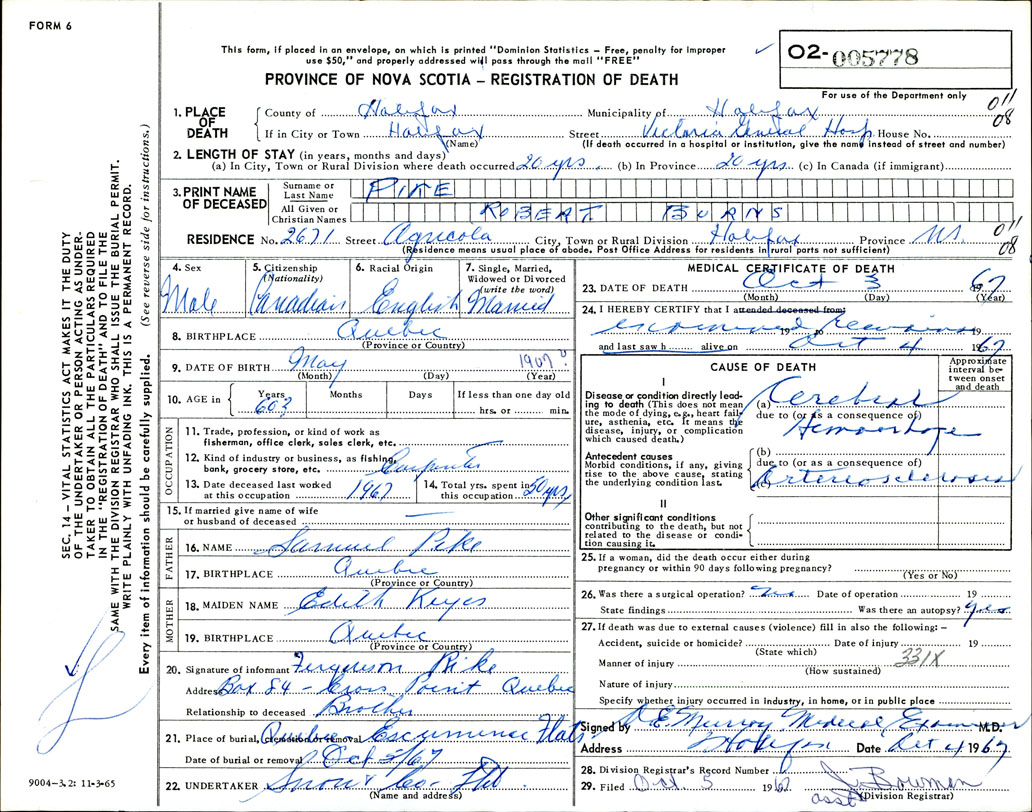 FORM 6
This form, if placed in an envelope, on which is printed "Dominion Statistics – Free, penalty for improper
use $50," and properly addressed will pass through the mail "FREE"
PROVINCE OF NOVA SCOTIA – REGISTRATION OF DEATH
02-005778
For use of the Department only
1. PLACE OF DEATH
County of Halifax Municipality of Halifax 011
08
If in City or Town Halifax Street Victoria General Hosp House No.
(Name) (If death occurred in a hospital or institution, give the name instead of street and number)
2. LENGTH OF STAY (in years, months and days)
(a) In City, Town or Rural Division where death occurred 20 yrs. (b) In Province 20 yrs. (c) In Canada (if immigrant)
3. PRINT NAME OF DECEASED
Surname or Last Name PIKE
All Given or Christian Names ROBERT BURNS
RESIDENCE No. 2671 Street Agricola City, Town or Rural Division Halifax Province N.S. 011
08
(Residence means usual place of abode. Post Office Address for residents in rural parts not sufficient)
4. Sex Male
5. Citizenship (Nationality) Canadian
6. Racial Origin English
7. Single, Married, Widowed or Divorced (write the word) Married
8. BIRTHPLACE Quebec
(Province or Country)
9. DATE OF BIRTH May 1907?
(Month) (Day) (Year)
10. AGE in Years 60? Months Days If less than one day old
hrs. or min.
OCCUPATION
11. Trade, profession or kind of work as
fisherman, office clerk, sales clerk, etc.
12. Kind of industry or business, as fishing,
bank, grocery store, etc. Carpenter
13. Date deceased last worked
at this occupation 1967
14. Total yrs. spent in
this occupation 50 yrs
15. If married give name of wife
or husband of deceased —
FATHER
16. NAME Samuel Pike
17. BIRTHPLACE Quebec
(Province or Country)
MOTHER
18. MAIDEN NAME Edith Keyes
19. BIRTHPLACE Quebec
(Province or Country)
20. Signature of informant Ferguson Pike
Address Box 84 – Cross Point Quebec
Relationship to deceased Brother
21. Place of burial, cremation or removal Escuminac Flats
Date of burial or removal Oct 5/67
22. UNDERTAKER Snow & Co. Ltd
(Name and address)
MEDICAL CERTIFICATE OF DEATH
23. DATE OF DEATH Oct 3 67
(Month) (Day) (Year)
24. I HEREBY CERTIFY that I attended deceased from:
examined remains 19 to 19
and last saw h alive on Oct 4 1967
CAUSE OF DEATH
Approximate interval between onset and death
I
Disease or condition directly leading
to death (This does not mean
the mode of dying, e.g., heart failure,
asthenia, etc. It means the
disease, injury, or complication
which caused death.)
(a) Cerebral
due to (or as a consequence of)
Hemorrhage
Antecedent causes
Morbid conditions, if any, giving
rise to the above cause, stating
the underlying condition last.
(b)
due to (or as a consequence of)
(c) Arteriosclerosis
II
Other significant conditions
contributing to the death, but not
related to the disease or condition
causing it.
25. If a woman, did the death occur either during
pregnancy or within 90 days following pregnancy?
(Yes or No)
26. Was there a surgical operation? Date of operation 19
State findings Was there an autopsy? Yes
27. If death was due to external causes (violence) fill in also the following: –
Accident, suicide or homicide? Date of injury 19
(State which)
331X
Manner of injury
(How sustained)
Nature of injury
Specify whether injury occurred in industry, in home, or in public place
Signed by E. Murray Medical Examiner M.D.
Address Halifax Date Oct 4 1967
28. Division Registrar's Record Number
29. Filed Oct. 5 1967 J. Bowman
asst (Division Registrar)
SEC. 14 – VITAL STATISTICS ACT MAKES IT THE DUTY
OF THE UNDERTAKER OR PERSON ACTING AS UNDERTAKER
TO OBTAIN ALL THE PARTICULARS REQUIRED
IN THE "REGISTRATION OF DEATH" AND TO FILE THE
SAME WITH THE DIVISION REGISTRAR WHO SHALL ISSUE THE BURIAL PERMIT.
WRITE PLAINLY WITH UNFADING INK. THIS IS A PERMANENT RECORD.
Every item of information should be carefully supplied. (See reverse side for instructions.)
9004–3.2: 11-3-65